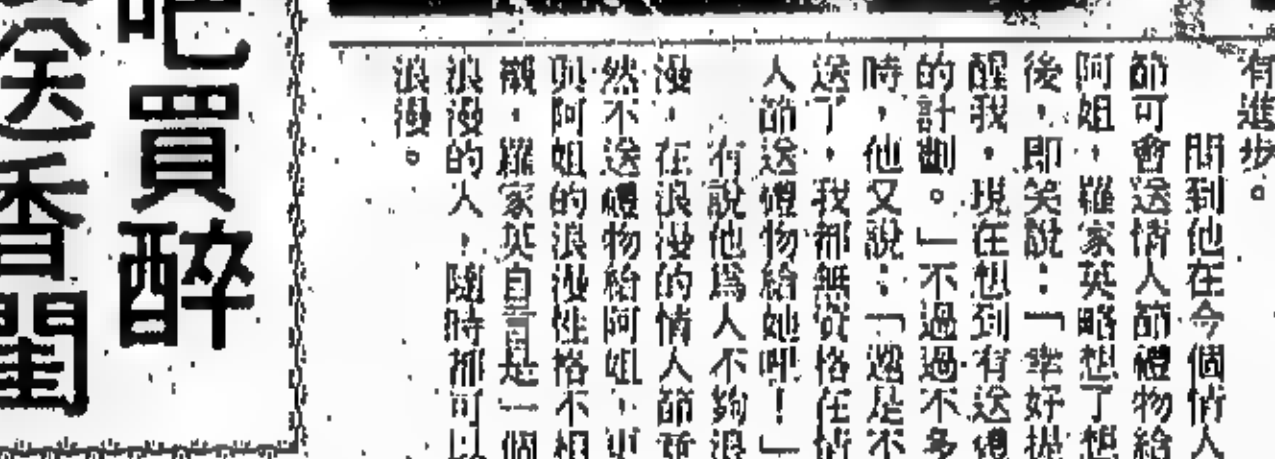 有進步。
問到他在今個情人
節可會送情人節禮物給
阿姐,羅家英略想了想
後,即笑說:「幸好提
醒我,現在想到有送禮
的計劃。」不過過不多
時,他又說:「還是不
送了,我都無資格在情
人節送禮物給她吧!」
有說他為人不夠浪
漫,在浪漫的情人節竟
然不送禮物給阿姐,更
與阿姐的浪漫性格不相
襯,羅家英自言是一個
浪漫的人,隨時都可以
浪漫。
吧買醉
送香閨